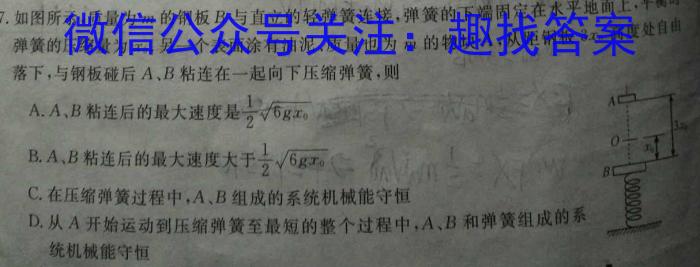 7.如图所示,质量为m的钢板B与直立的轻弹簧连接,弹簧的下端固定在水平地面上,平衡时
弹簧的压缩量为 另一个表面涂有油泥、质量也为m的物块 从距钢板3x 高度处自由
微信公众号关注:趣找答案
落下,与钢板碰后A、B粘连在一起向下压缩弹簧,则
A.A、B粘连后的最大速度是1/2√6gx₀
B.A、B粘连后的最大速度大于1/2√6gx₀
C.在压缩弹簧过程中,A、B组成的系统机械能守恒
D.从A开始运动到压缩弹簧至最短的整个过程中,A、B和弹簧组成的系
统机械能守恒
A
3x₀
O
x₀
B